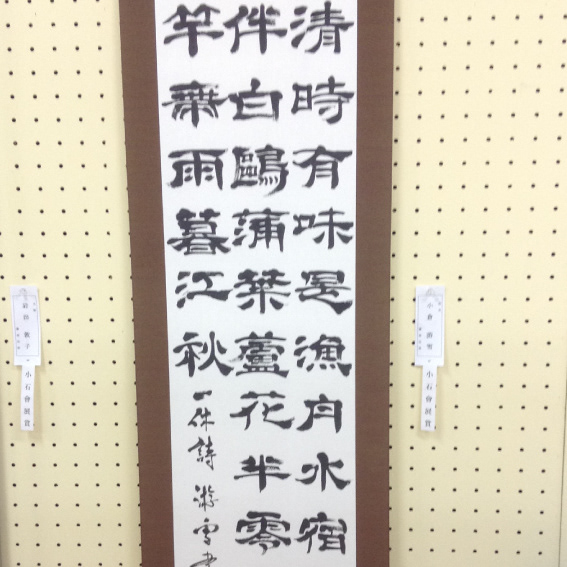 清時有味是漁舟水宿
伴白鷗蒲葉蘆花半零
竿帶雨暮江秋
一休詩 游雪書
小石會展賞
小石會展賞